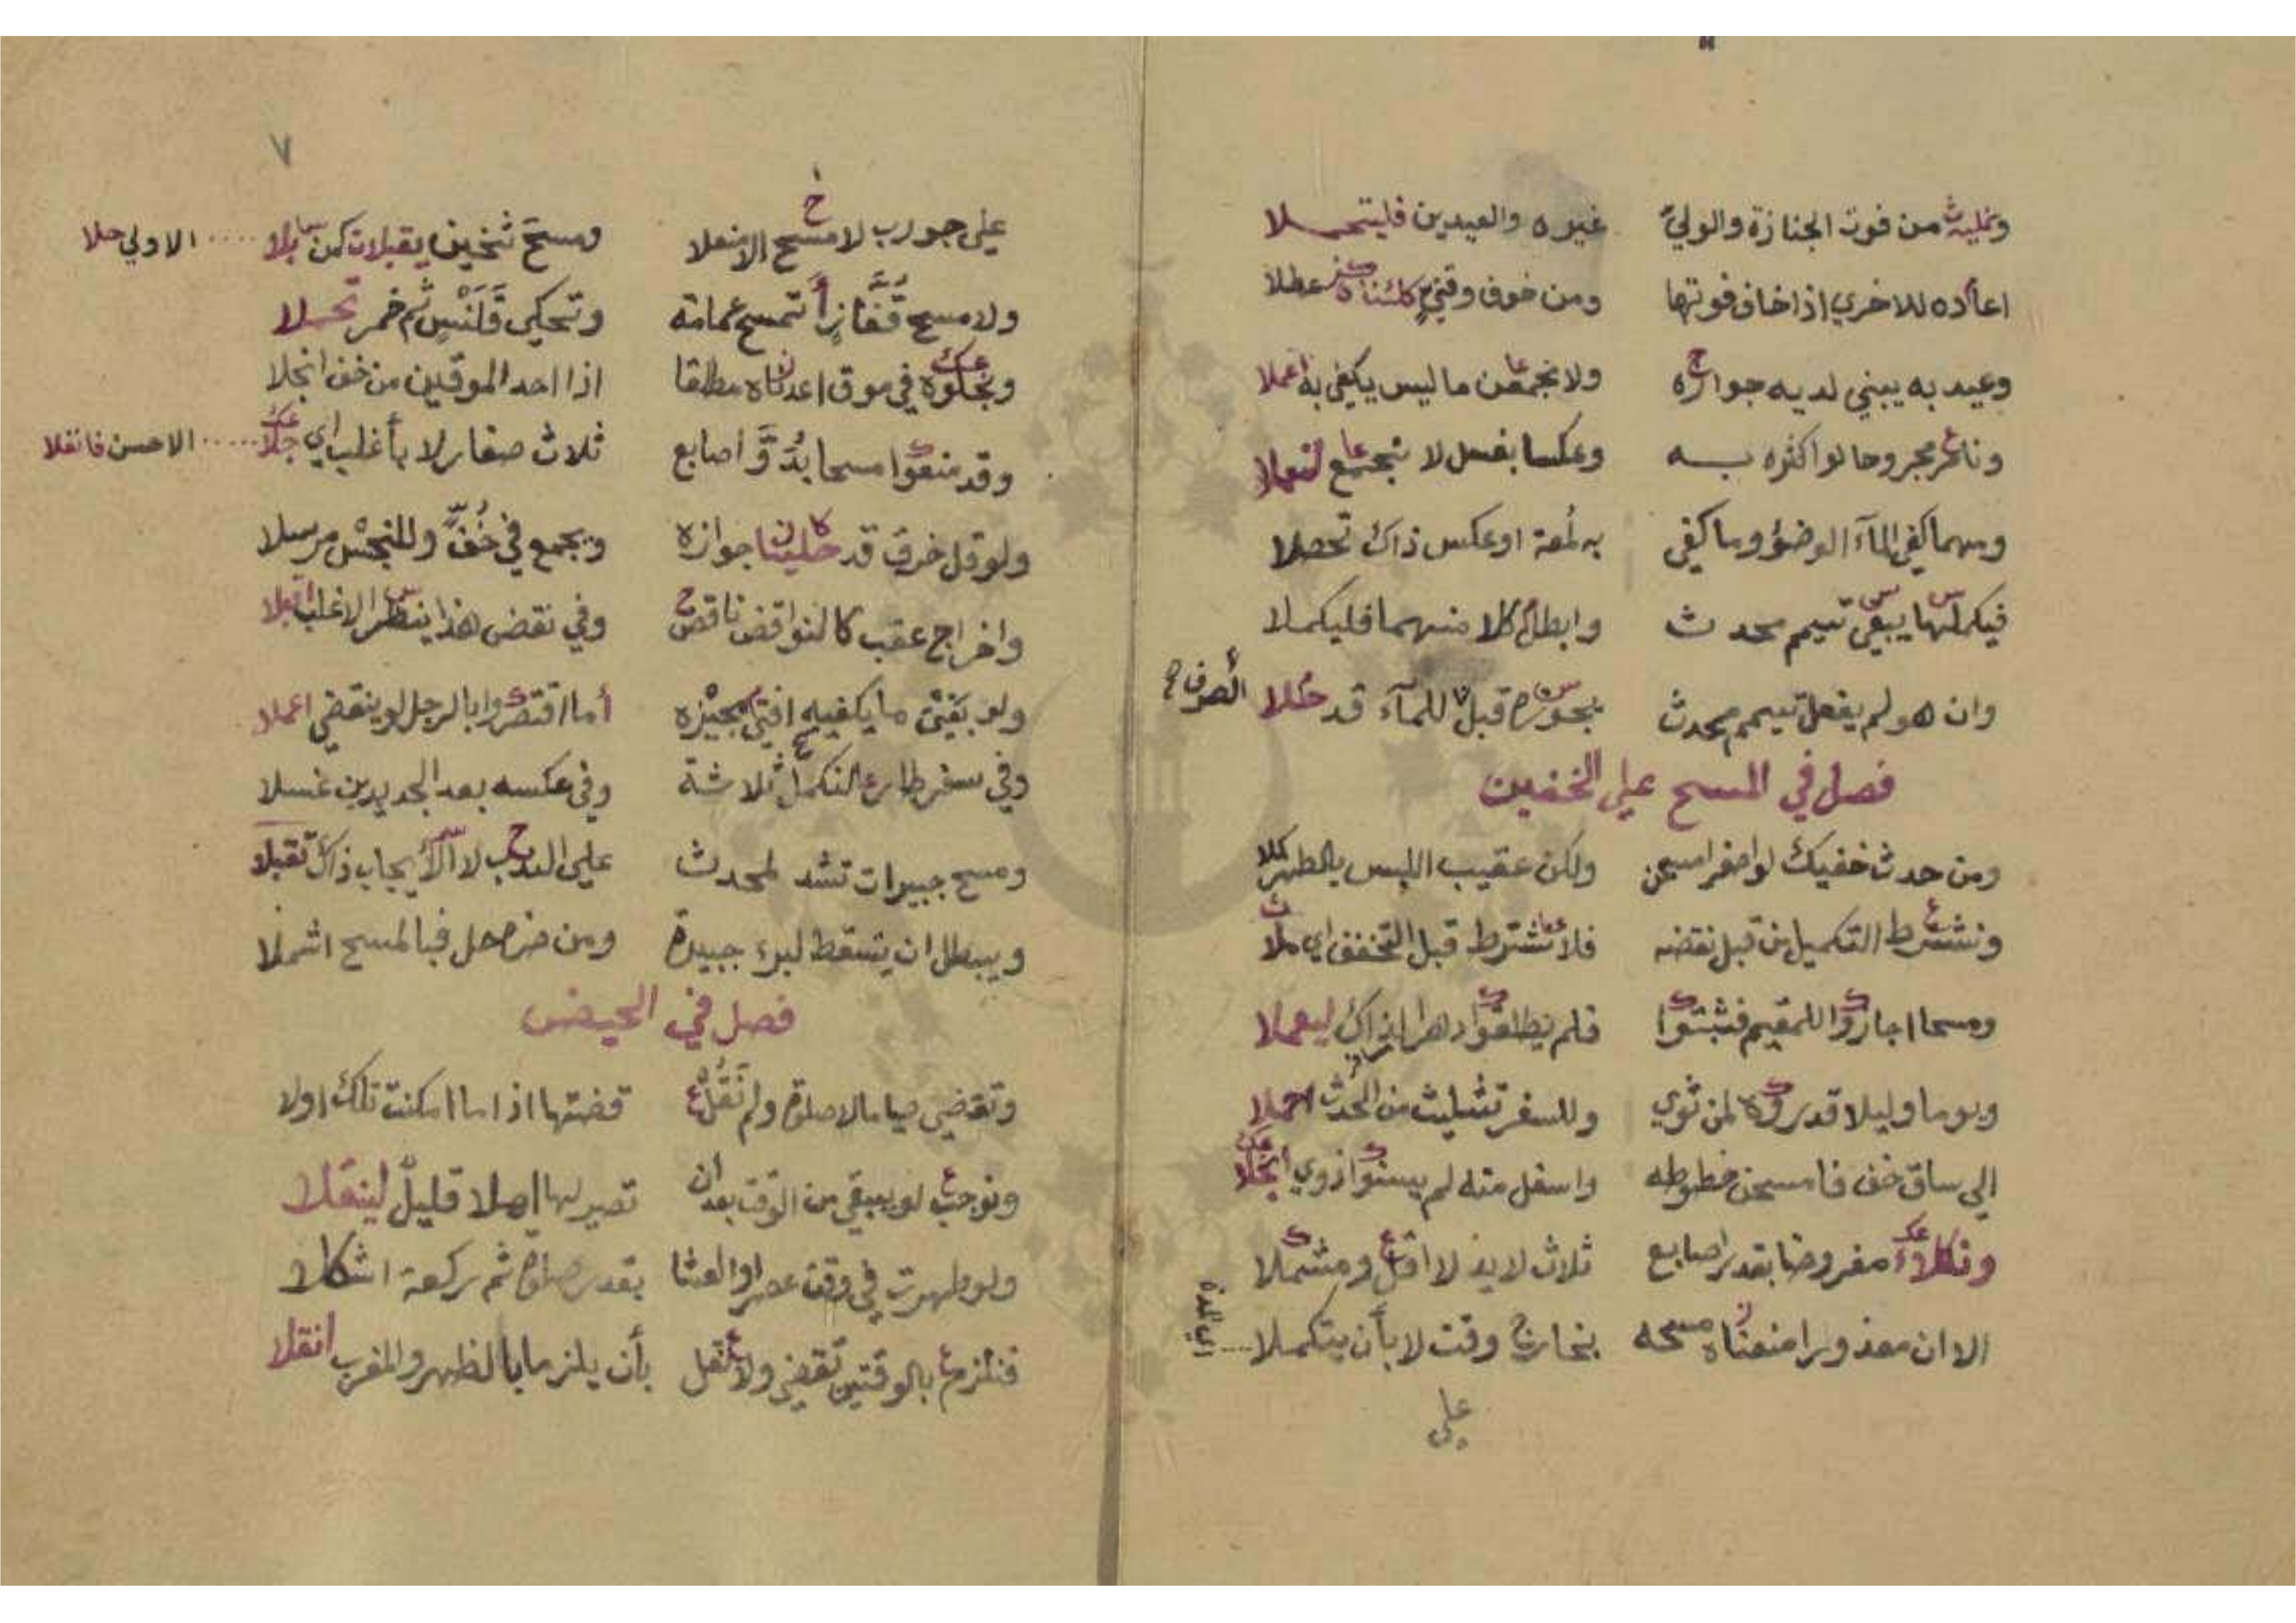 من فوت الجنازة والولي غيره والعيدين فليتحملا
اعاده للاخري اذا خاف فوتها ومن خوف وقتي عطلا
وعيد به يبني لديه جوازه ولا نجمعن ما ليس يكفي به اعملا
مجروحا لو اكثره به وعكسا بغسل لا نجمع لتعملا
ومهما كفي المآء الوضؤ وما كفي به لمعة او عكس ذاك تحصلا
فيكملنها يبقي تيمم محدث وابطال كلا منهما فليكملا
وان هو لم يفعل تيمم محدث قبل للمآء قد حللا
فصل في المسح علي الخفين
ومن حدث خفيك لو اصفر امسحن ولكن عقيب اللبس بالطهر كملا
ونشترط التكميل من قبل نقضه فلا نشترط قبل التخفف اي ملا
ومسحا اجازوا للمقيم فثبتوا فلم يطلقوا دهرا لذاك ليعملا
ويوما وليلا قدروه لمن ثوي وللسفر تثليث من الحدث احملا
الي ساق خف فامسحن خطوطه واسفل منه لم يسنوا ذوي انجلا
مفروضا بقدر اصابع ثلاث لا يد لا اقل ومشملا
الا ان معذورا منعناه مسحه بخارج وقت لا بأن يتكملا .... اي المدة
علي
٧
علي جورب لا مسح الا منعلا ومسح ثخين يقبلان كمن بلا .... الاولي حلا
ولا مسح قفازا تمسح عمامة وتحكي قلنس ثم خمر تحملا
في موق اعدناه مطلقا اذا احد الموقين من خف انجلا
وقد منعوا مسحا بدو اصابع ثلاث صغار لا بأغلب اي جلا .... الاحسن فانقلا
ولو قل خرق قد جوازه ويجمع في خف وللنجس مرسلا
واخراج عقب كالنواقض ناقض وفي نقض هذا ينظر الاغلب
ولو بقي ما يكفيه افتي بجيزه أما اقتصروا بالرجل لو ينقضي اعملا
وفي سفر طار التكمل ثلاثة وفي عكسه بعد الجديدين غسلا
ومسح جبيرات تشد لمحدث علي الندب لا الايجاب ذاك تقبلا
ويبطل ان يسقط لبرء جبيرة ومن ضره حل فبالمسح اشملا
فصل في الحيض
وتقضي صياما لا صلوة ولم نقل قضتها اذا ما امكنت تلك اولا
ونوجب لو يبقي من الوقت بعد ان تصير لها اهلا قليل لينقلا
ولو طهرت في وقت عصر او العشا بقدر صلوة ثم ركعة اشكلا
فنلزم بالوقتين تقضي ولا نقل بأن يلزما بالظهر والمغرب انقلا